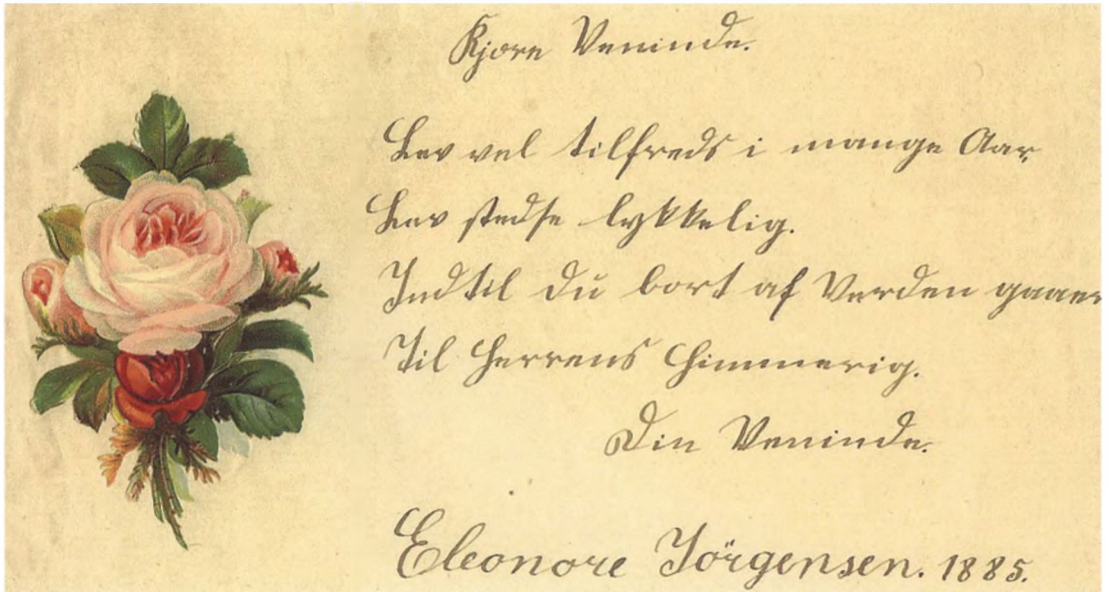 Kjære Veninde.
Lev vel tilfreds i mange Aar,
Lev stedse lykkelig.
Indtil du bort af Verden gaaer
Til Herrens Himmerig.
Din Veninde.
Eleonore Jörgensen. 1885.